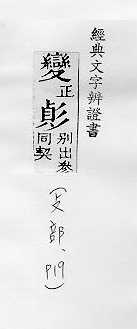 經典文字辨證書
變正
别出參
同契
(攴部、P19)